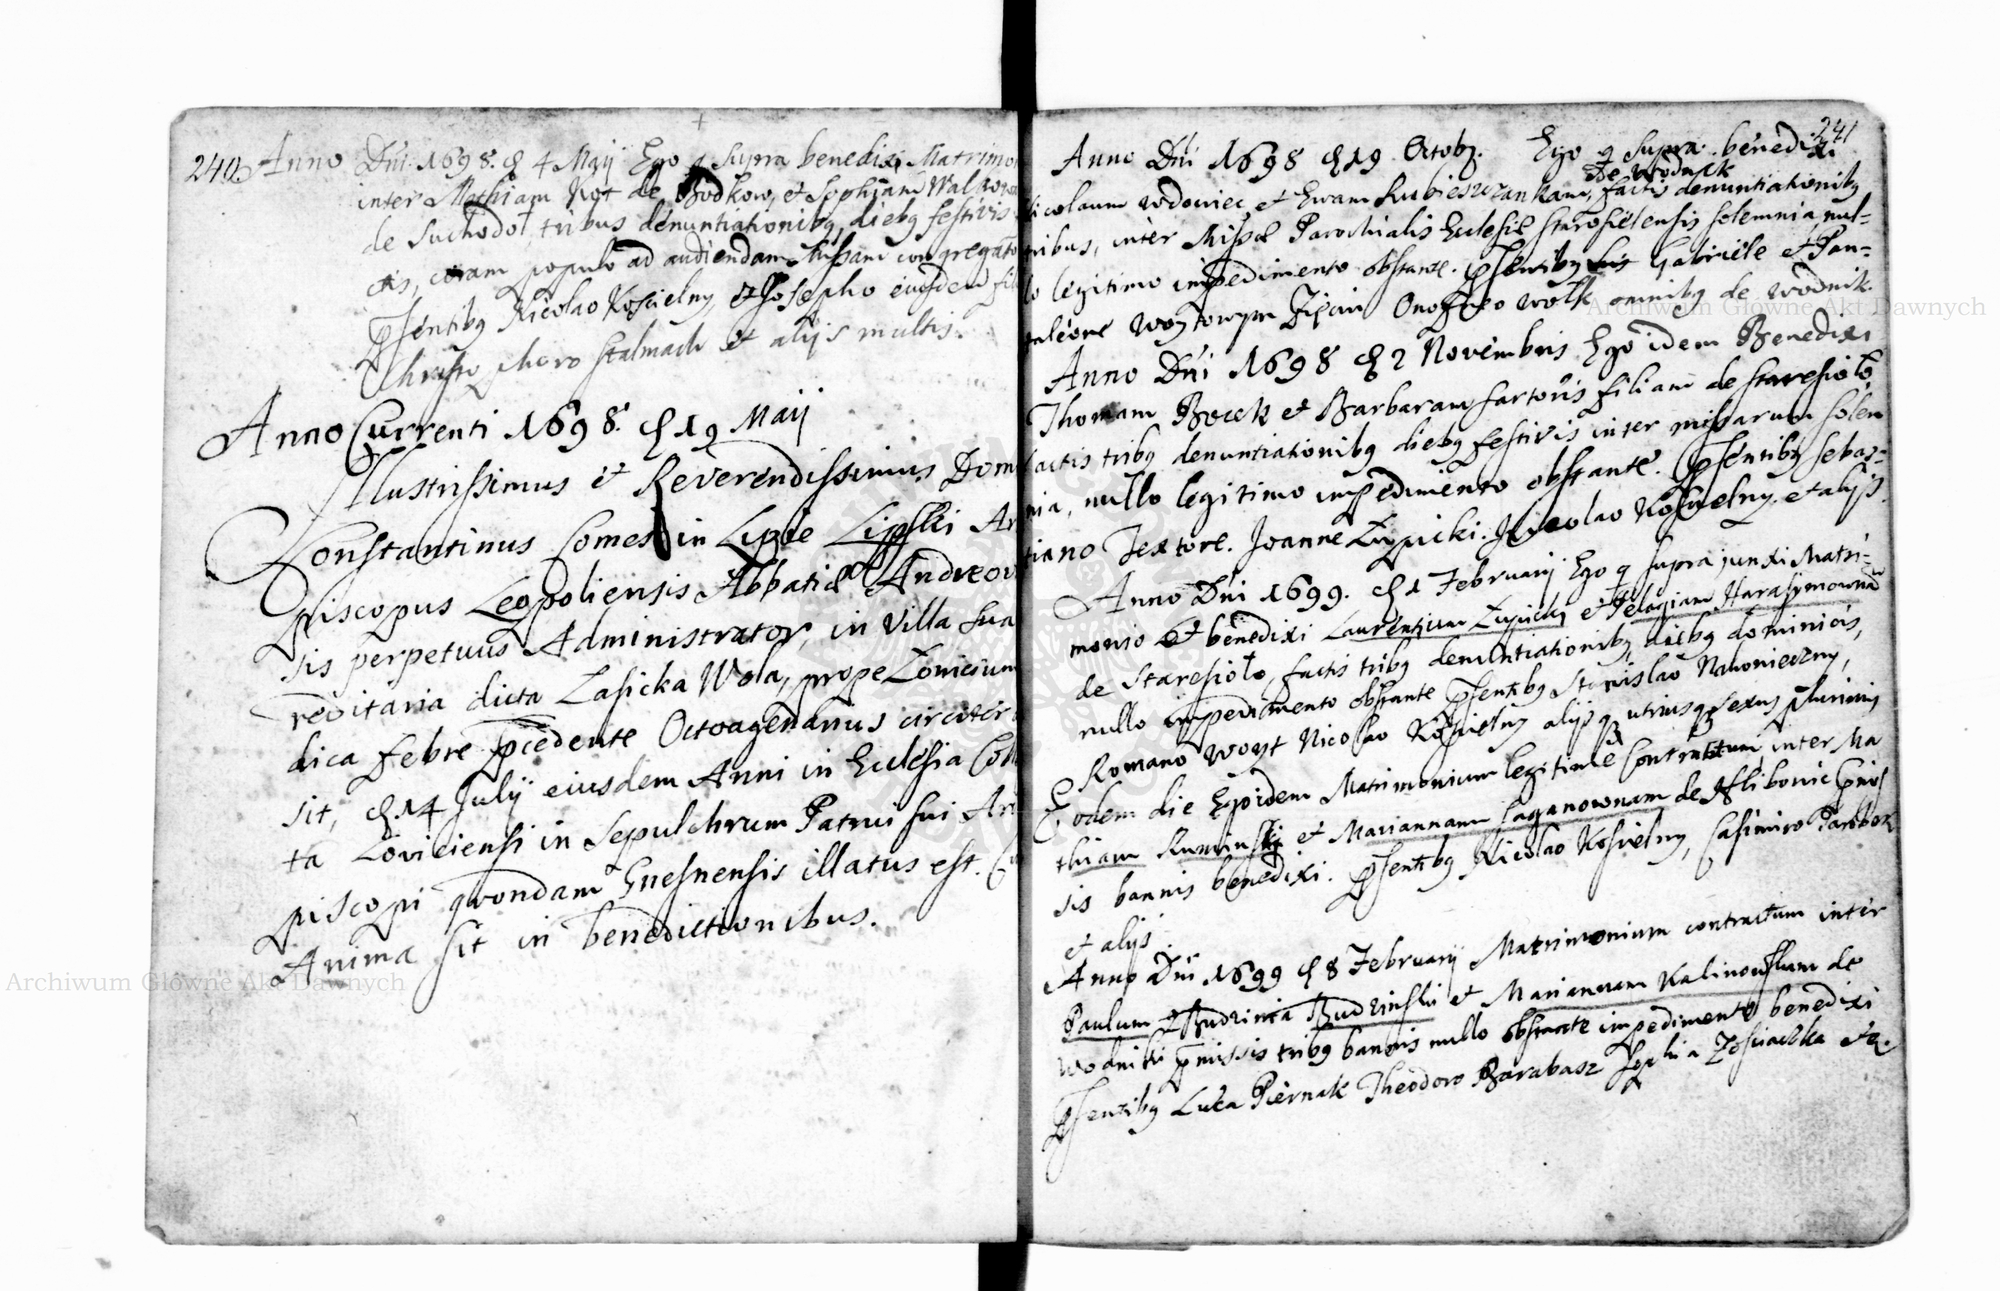 240 Anno Dni 1698. d 4 Maij Ego q supra benedixi Matrimo
inter Mathiam Kot de Bodkow, et Sophiam
de Suchodoł, tribus denuntiationibq, diebq festivis
ctis, coram populo ad audiendam Missam congregato
psentibq Nicolao Koscielny, et Josepho eiusdem fil
Christophoro Stalmach et alijs multis.
Anno Currenti 1698. d 19 Maij
Illustrissimus et Reverendissimus Dom
Constantinus Comes in Lipie Lipski Ar
piscopus Leopoliensis Abbatiæ Andreov
sis perpetuus Administrator, in Villa sua
reditaria dicta Lasicka Wola, prope Lovicium
dica febre pcedente Octoagenarius circiter
sit, d 14 Julij eiusdem Anni in Ecclesia Coll
ta Loviciensi in Sepulchrum Patrui sui Ar
piscopi qvondam Gnesnensis illatus est. Cu
Anima sit in benedictionibus.
241
Anno Dni 1698 d 19 Octobr. Ego q supra benedixi
de Wodnik
icolaum wdowiec et Ewam Rubieszczankam, factis denuntiationibq
tribus, inter Missæ Parochialis Eclesiæ Staresielensis solemnia, nul-
lo legitimo impedimento obstante. psentibq Gabriele et Pan-
taleone Woytowym Onofreo Wołk omnibq de Wodnik.
Anno Dni 1698 d 2 Novembris Ego idem Benedixi
Thomam Bocek et Barbaram Sartoris filiam de Staresioło,
factis tribq denuntiationibq diebq festivis inter missarum solem
nia, nullo legitimo impedimento obstante. psentibq Sebas-
tiano Textore. Joanne Łupicki. Nicolao Koscielny. et alijs.
Anno Dni 1699. d 1 Februarij Ego q supra junxi Matri-
monio et benedixi Laurentium Łupicki et Pelagiam Harasymowna
de Staresioło, factis tribq denuntiationibq diebq dominicis,
nullo impedimento obstante psentibq Stanislao Nakonieczny,
Romano Woyt Nicolao Koscielny alijsq utriusq sexus plurimis
Eodem die Ego idem Matrimonium legitime Contractum inter Ma
thiam Ruminski et Mariannam Saganownam de Hlibowic pmis
sis bannis benedixi. psentibq Nicolao Koscielny, Casimiro Parobek
et alijs
Anno Dni 1699 d 8 Februarij Matrimonium contractum inter
Paulum Budzinski et Mariannam Kalinowskam de
Wodniki pmissis tribq bannis nullo obstante impedimento benedixi
psentibq Luca Piernak Theodoro Barabasz Sophia Zosiaczka etc.
Archiwum Główne Akt Dawnych
Archiwum Główne Akt Dawnych